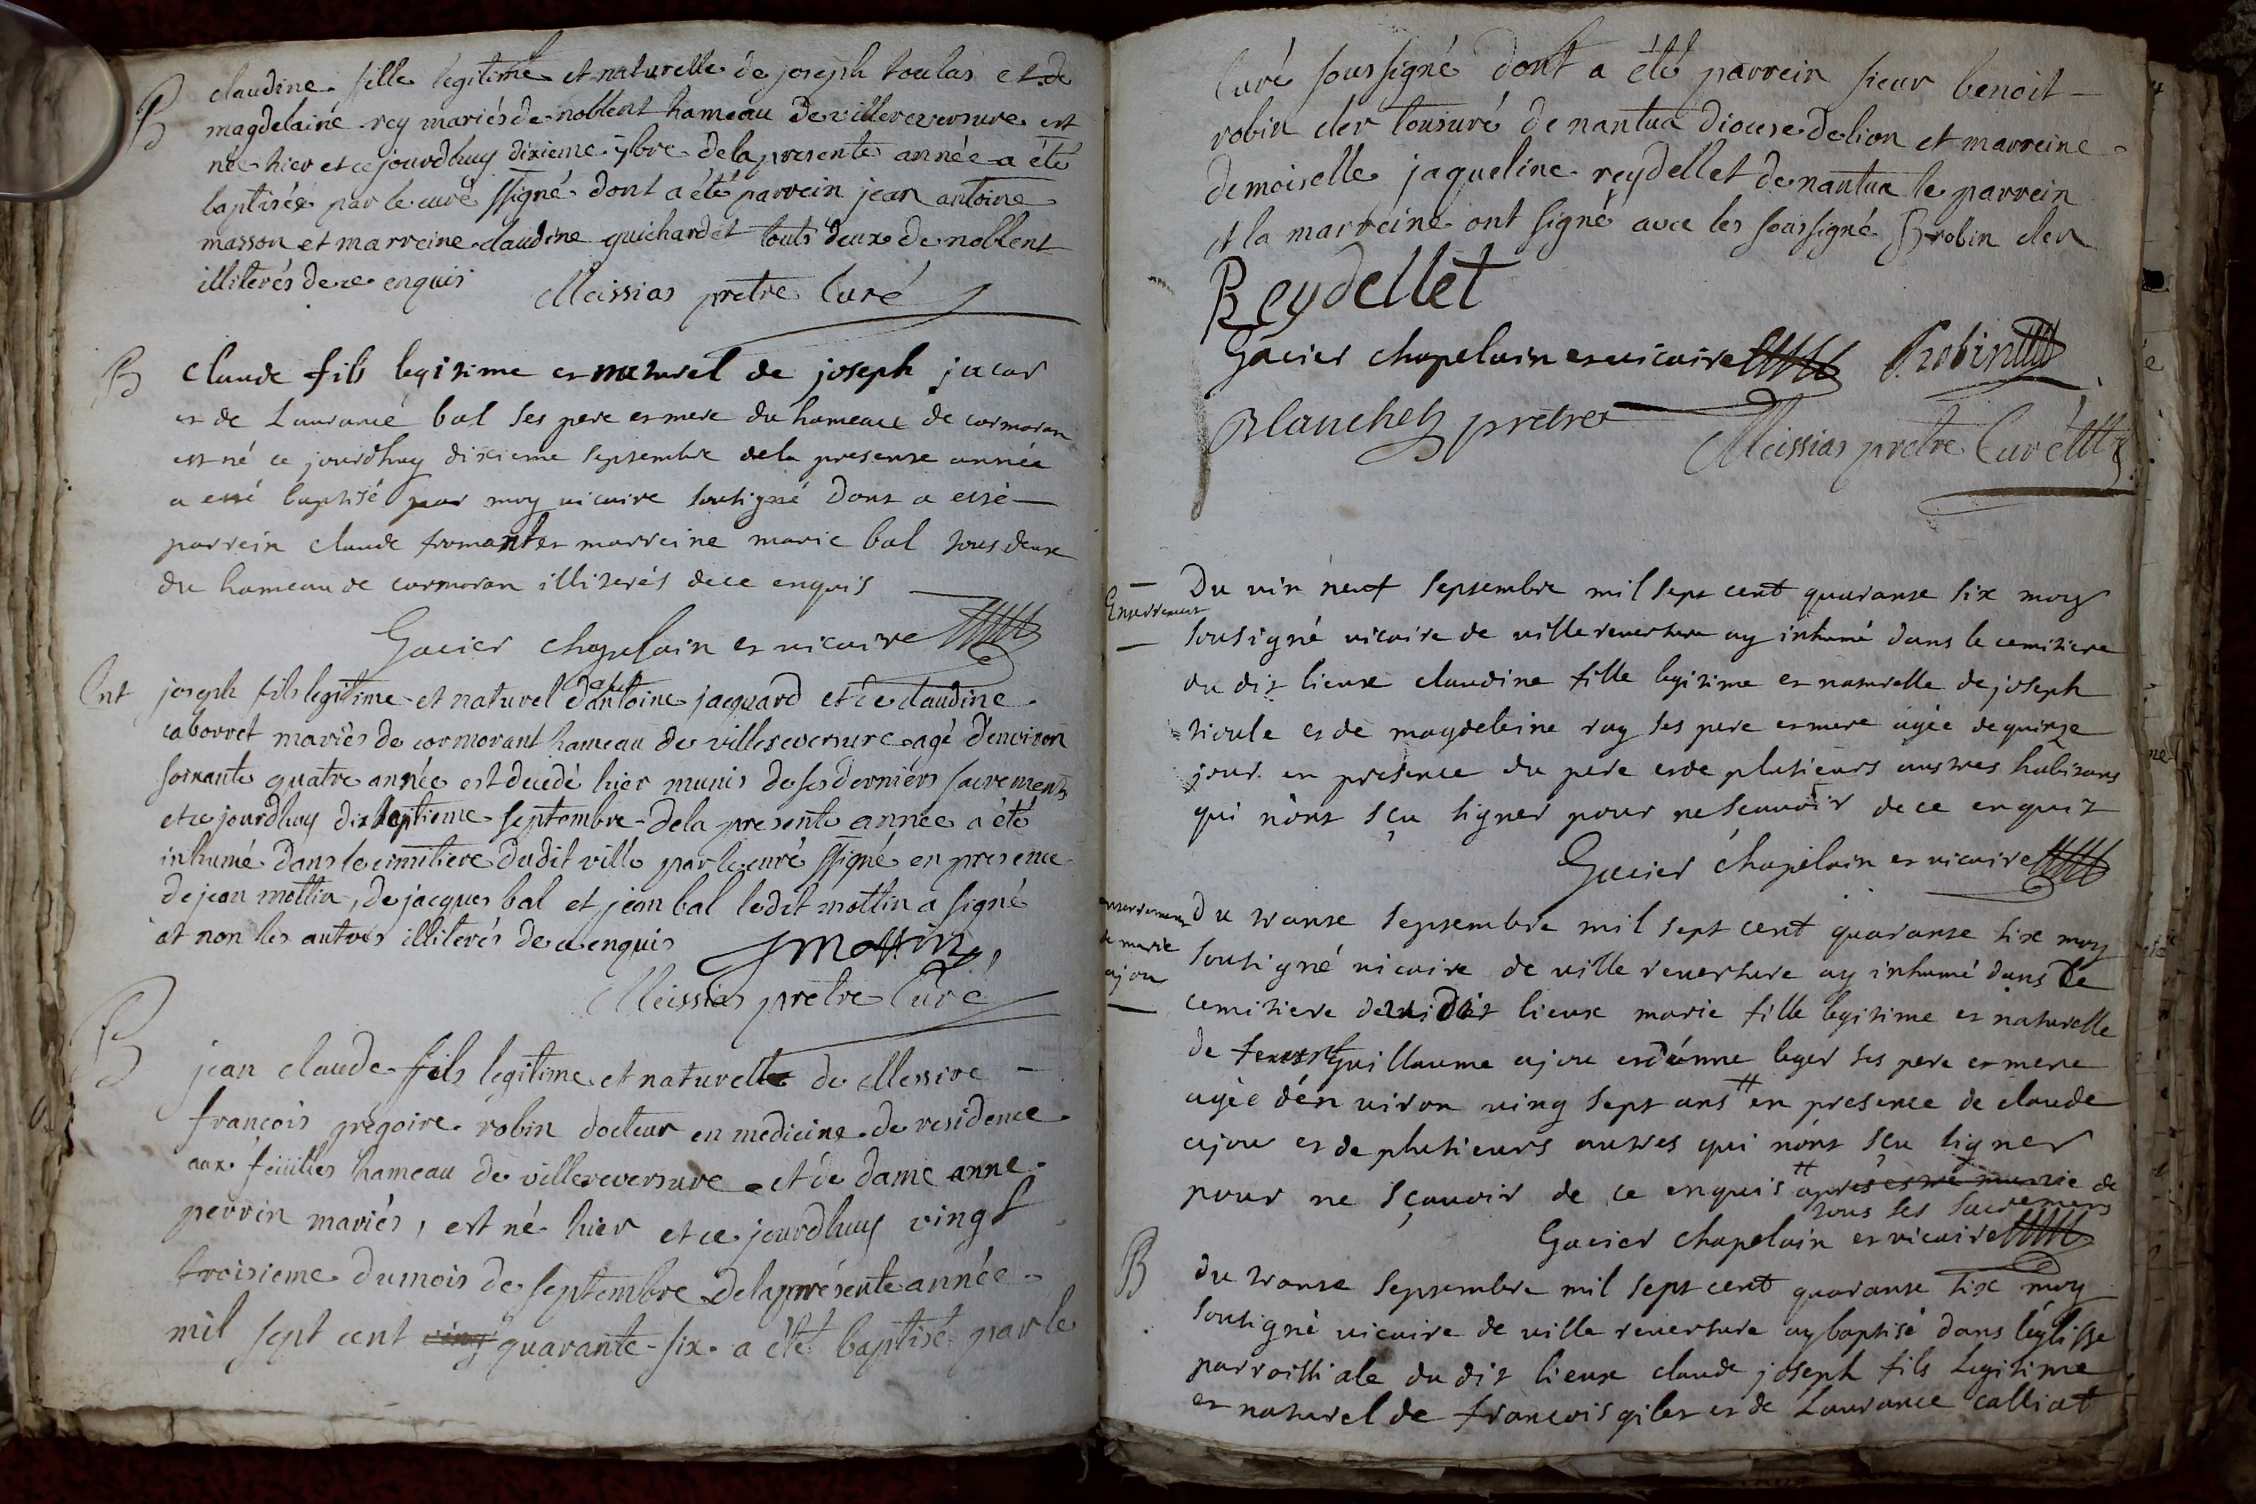 B claudine fille legitime et naturelle de joseph toulas et de
magdelaine rey mariés de noblent hameau de villereversure est
née hier et ce jourdhuy dixieme 7bre de la presente année a été
baptisée par le curé ssigné dont a été parrein jean antoine
masson et marreine claudine guichardet touts deux de noblent
illiterés de ce enquis Meissias pretre Curé
B claude fils legitime et naturel de joseph jacar
et de Laurance bal ses pere et mere du hameau de cormoran
est né ce jourdhuy dixieme septembre dela presente année
a esté baptisé par moy vicaire sousigné dont a esté
parrein claude fromant et marreine marie bal tous deux
du hameau de cormoran illiterés de ce enquis
Gacier chapelain et vicaire
Ent joseph fils legitime et naturel d'antoine jacquard et de claudine
caborret mariés de cormorant hameau de villereversure agé d'environ
soixante quatre année est decedé hier munis de ses derniers sacrements
et ce jourdhuy dix septieme septembre dela presente année a été
inhumé dans le cimitiere dudit ville par le curé ssigné en presence
de jean mottin, de jacques bal et jean bal ledit mottin a signé
et non les autres illiterés de ce enquis J mottin
Meissias pretre Curé
B jean claude fils legitime et naturelle de Messire
françois gregoire robin docteur en medicine de residence
aux feüilles hameau de villereversure et de dame anne
perrin mariés, est né hier et ce jourdhuy vingt
troisieme du mois de septembre dela présente année
mil sept cent ving quarante six a été baptisé par le
Curé soussigné dont a été parrein sieur benoit
robin cler tonsuré de nantua diocese de lion et marreine
demoiselle jaqueline reydellet de nantua le parrein
et la marreine ont signé avec les soussigné B robin cler
Reydellet
Gacier chapelain et vicaire Probin
Blanchet pretre
Meissias pretre Curé
Enterrement
Du vin neuf septembre mil sept cent quarante six moy
sousigné vicaire de villereversure ay inhumé dans le cemitiere
du dit lieux claudine fille legitime et naturelle de joseph
tioule et de magdeleine ray ses pere et mere agée de quinze
jour en presence du pere et de plusieurs austres habitans
qui nont sçu signer pour ne scavoir de ce enquit
Gacier chapelain et vicaire
enterrement
de marie
ajou
Du trante septembre mil sept cent quarante six moy
sousigné vicaire de villereversure ay inhumé dans le
cemitiere du dit lieux marie fille legitime et naturelle
de Guillaume ajou et d'énne leger ses pere et mere
agée d'én viron ving sept ans # en presence de claude
ajou et de plusieurs autres qui nónt sçu signer
pour ne sçavoir de ce enquis # apres estre munie de
tous ses sacremens
Gacier chapelain et vicaire
B du trante septembre mil sept cent quarante six moy
sousigné vicaire de villereversure ay baptisé dans léglisse
parroissiale du dit lieux claude joseph fils legitime
et naturel de françois gilet et de Laurance calliat